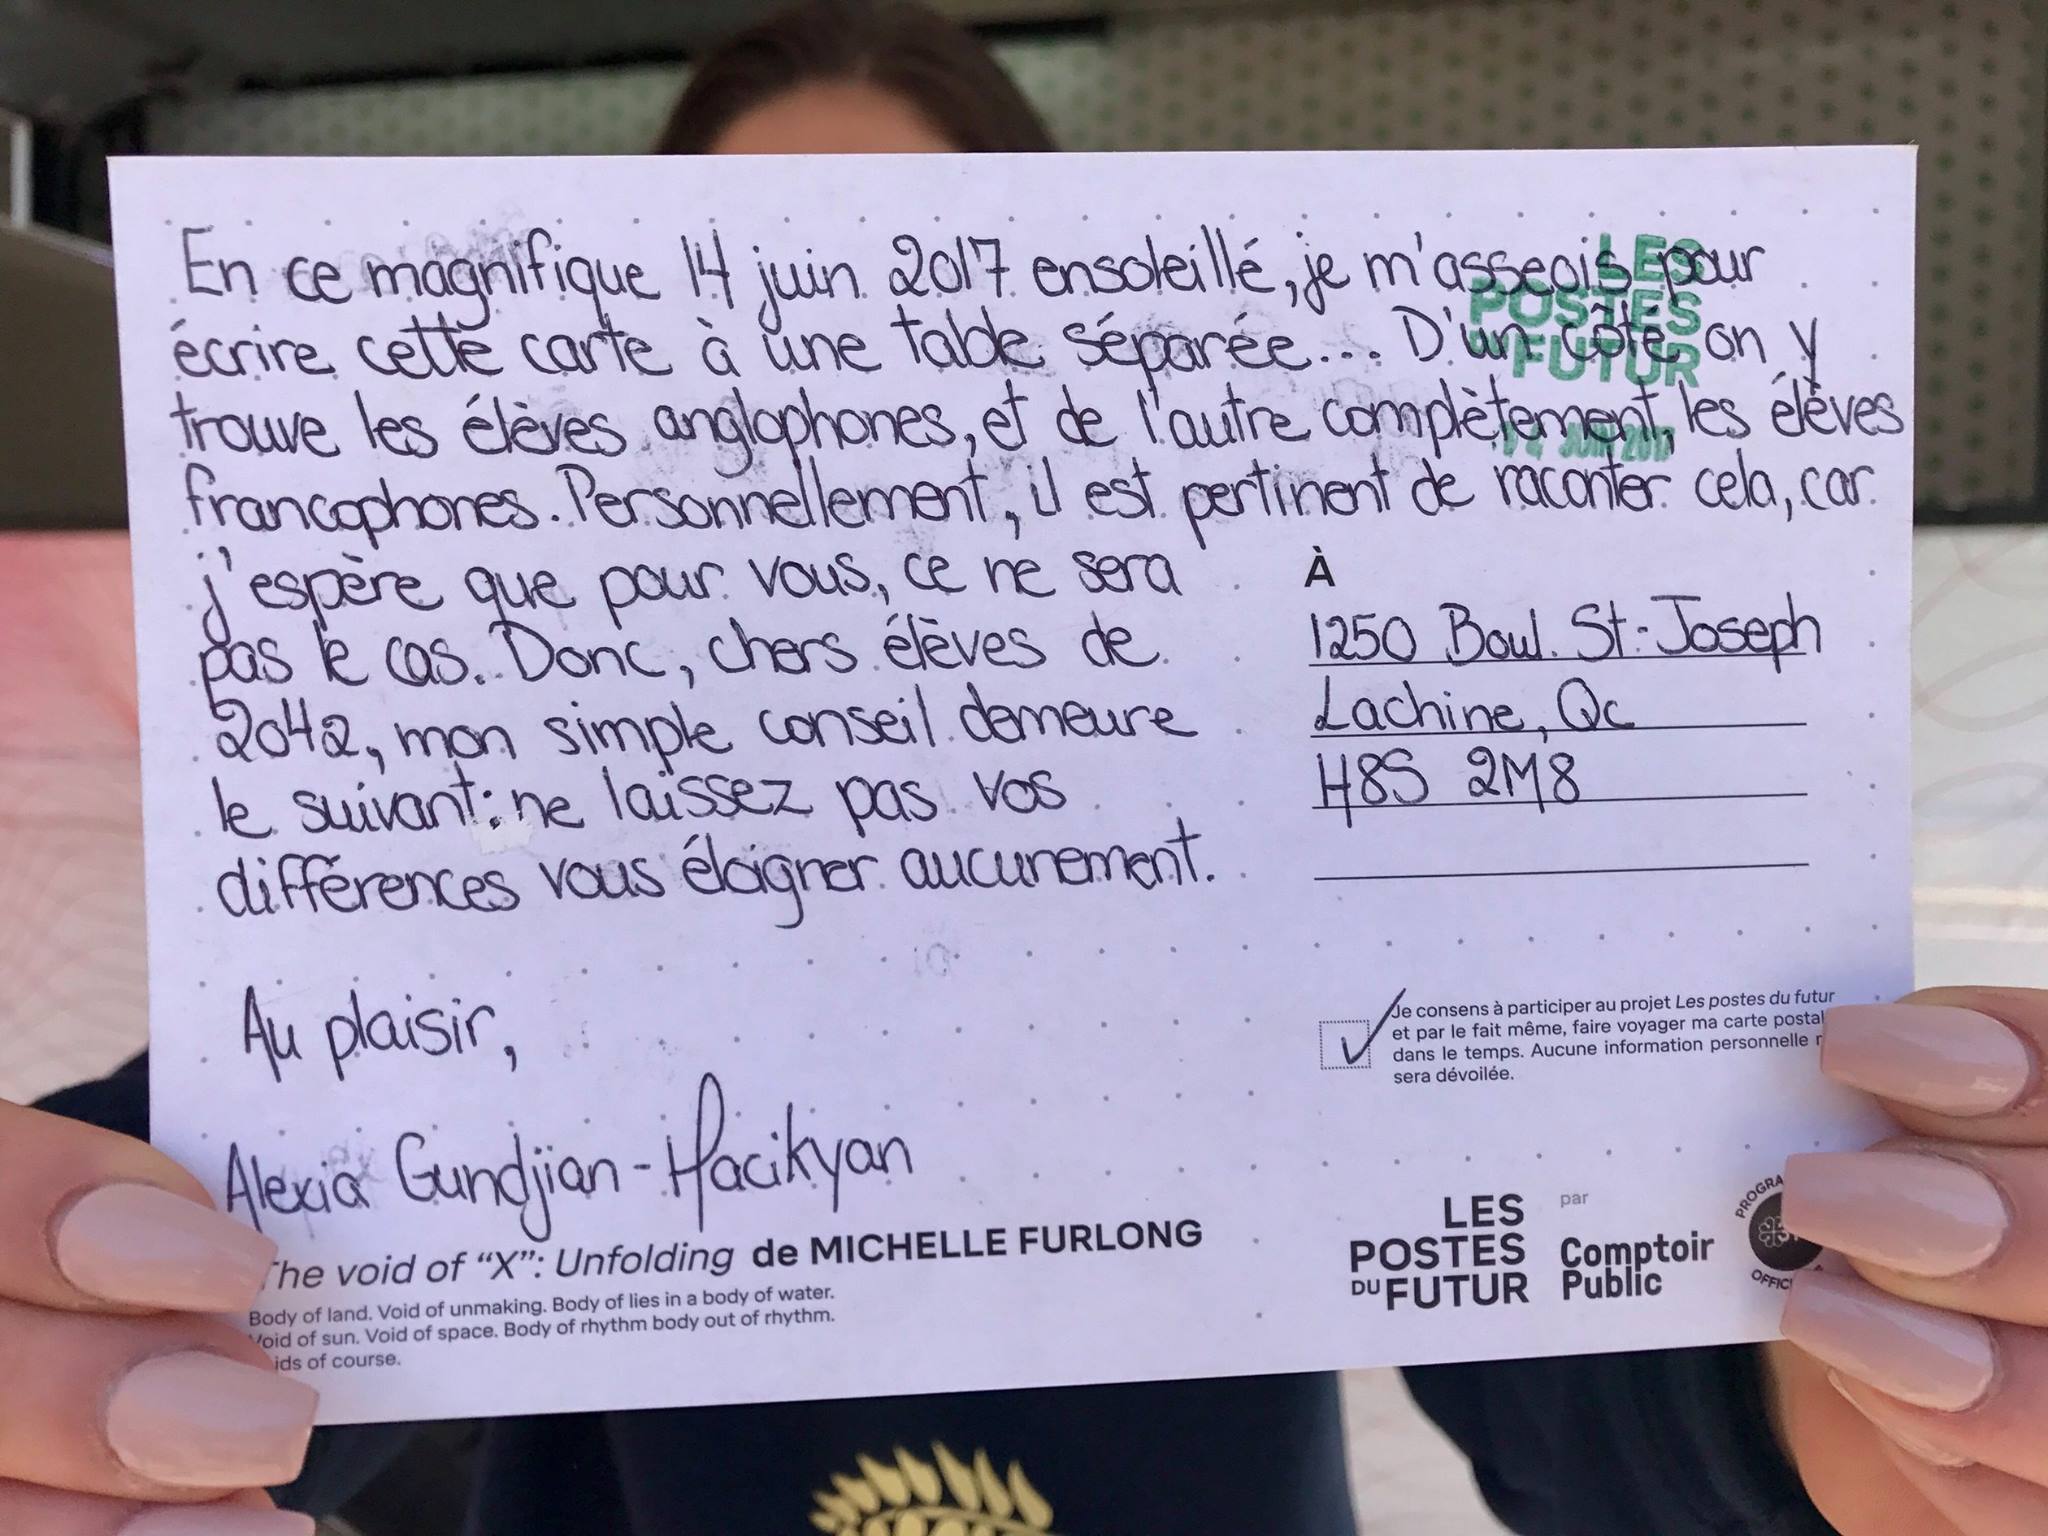 En ce magnifique 14 juin 2017 ensoleillé, je m'asseois pour
écrire cette carte à une table séparée... D'un côté on y
trouve les élèves anglophones, et de l'autre complètement, les élèves
francophones. Personnellement, il est pertinent de raconter cela, car
j'espère que pour vous, ce ne sera
pas le cas. Donc, chers élèves de
2042, mon simple conseil demeure
le suivant: ne laissez pas vos
différences vous éloigner aucunement.
Au plaisir,
Alexia Gundjian-Hacikyan
LES
POSTES
DU FUTUR
14 JUIN 2017
À
1250 Boul. St-Joseph
Lachine, Qc
H8S 2M8
Je consens à participer au projet Les postes du futur
et par le fait même, faire voyager ma carte postal
dans le temps. Aucune information personnelle
sera dévoilée.
The void of “X”: Unfolding de MICHELLE FURLONG
Body of land. Void of unmaking. Body of lies in a body of water.
Void of sun. Void of space. Body of rhythm body out of rhythm.
ids of course.
LES
POSTES
DU FUTUR
par
Comptoir
Public
PROGRA
OFFICI